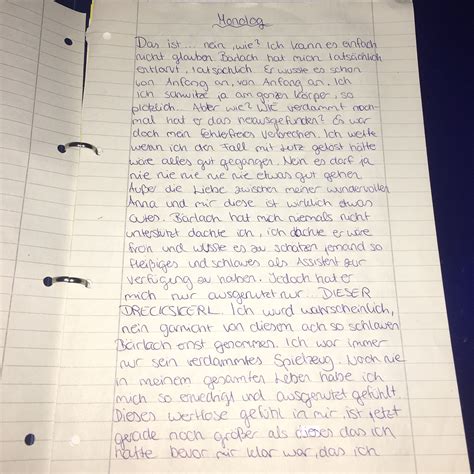 Monolog
Das ist... nein, wie? Ich kann es einfach
nicht glauben Bärlach hat mich tatsächlich
entlarvt, tatsächlich. Er wusste es schon
von Anfang an, von Anfang an. Ich
ich schwitze ja am ganzen Körper, so
plötzlich. Aber wie? Wie verdammt noch-
mal hat er das herausgefunden? Es war
doch mein fehlerfreies Verbrechen. Ich wette
wenn ich den Fall mit Lutz gelöst hätte
wäre alles gut gegangen. Nein es darf ja
nie nie nie nie nie etwas gut gehen.
Außer die Liebe zwischen meiner wundervollen
Anna und mir diese ist wirklich etwas
Gutes. Bärlach hat mich niemals nicht
unterstützt dachte ich, ich dachte er wäre
froh und wüsste es zu schätzen jemand so
fleißiges und schlaues als Assistent zur
Verfügung zu haben. Jedoch hat er
mich nur ausgenutzt nur... DIESER
DRECKSKERL. Ich wurd wahrscheinlich,
nein garnicht von diesem ach so schlauen
Bärlach ernst genommen. Ich war immer
nur sein verdammtes Spielzeug. Noch nie
in meinem gesamten Leben habe ich
mich so erniedrigt und ausgenutzt gefühlt.
Dieses wertlose gefühl in mir ist jetzt
gerade noch größer als dieses das ich
hatte bevor mir klar war, das ich